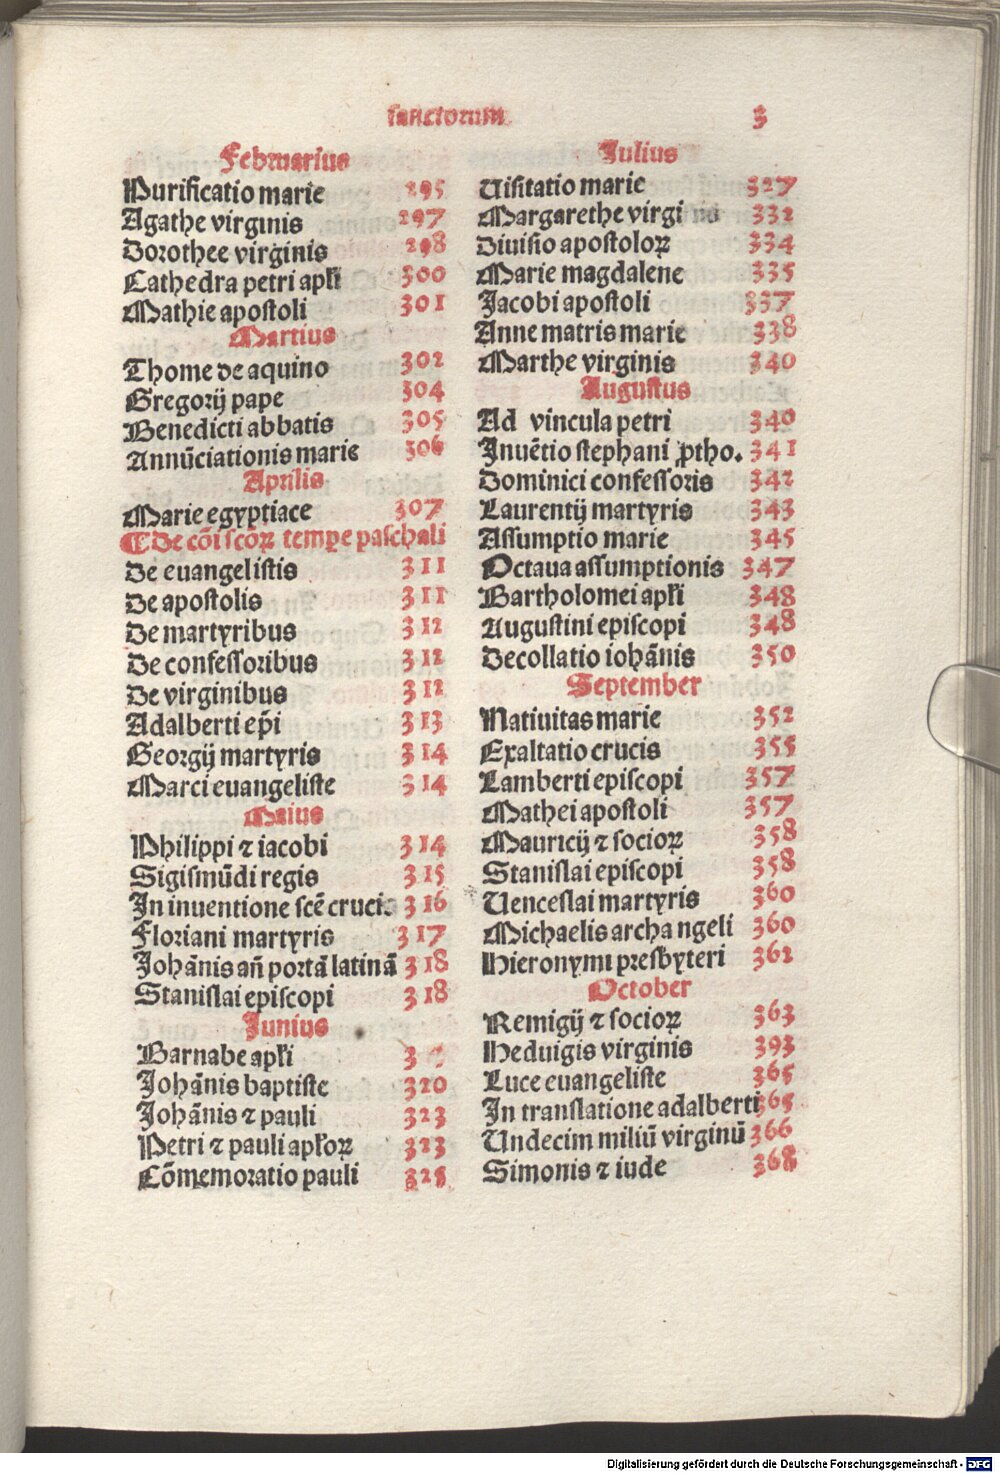 sanctorum 3
Februarius
Purificatio marie 295
Agathe virginis 297
Dorothee virginis 298
Cathedra petri apl̄i 300
Mathie apostoli 301
Martius
Thome de aquino 302
Gregorij pape 304
Benedicti abbatis 305
Annūciationis marie 306
Aprilis
Marie egyptiace 307
¶ De cōi scōꝝ tempe paschali
De euangelistis 311
De apostolis 311
De martyribus 312
De confessoribus 312
De virginibus 312
Adalberti ep̄i 313
Georgij martyris 314
Marci euangeliste 314
Maius
Philippi ⁊ iacobi 314
Sigismūdi regis 315
In inuentione scē crucis 316
Floriani martyris 317
Johānis an̄ portā latinā 318
Stanislai episcopi 318
Junius
Barnabe apl̄i
Johānis baptiste 320
Johānis ⁊ pauli 323
Petri ⁊ pauli apl̄oꝝ 323
Cōmemoratio pauli 325
Julius
Uisitatio marie 327
Margarethe virginis 332
Diuisio apostoloꝝ 334
Marie magdalene 335
Jacobi apostoli 337
Anne matris marie 338
Marthe virginis 340
Augustus
Ad vincula petri 340
Inuētio stephani ꝓtho. 341
Dominici confessoris 342
Laurentij martyris 343
Assumptio marie 345
Octaua assumptionis 347
Bartholomei apl̄i 348
Augustini episcopi 348
Decollatio iohānis 350
September
Natiuitas marie 352
Exaltatio crucis 355
Lamberti episcopi 357
Mathei apostoli 357
Mauricij ⁊ socioꝝ 358
Stanislai episcopi 358
Uenceslai martyris 360
Michaelis archangeli 360
Hieronymi presbyteri 362
October
Remigij ⁊ socioꝝ 363
Heduigis virginis 393
Luce euangeliste 365
In translatione adalberti 365
Undecim miliū virginū 366
Simonis ⁊ iude 368
Digitalisierung gefördert durch die Deutsche Forschungsgemeinschaft - DFG